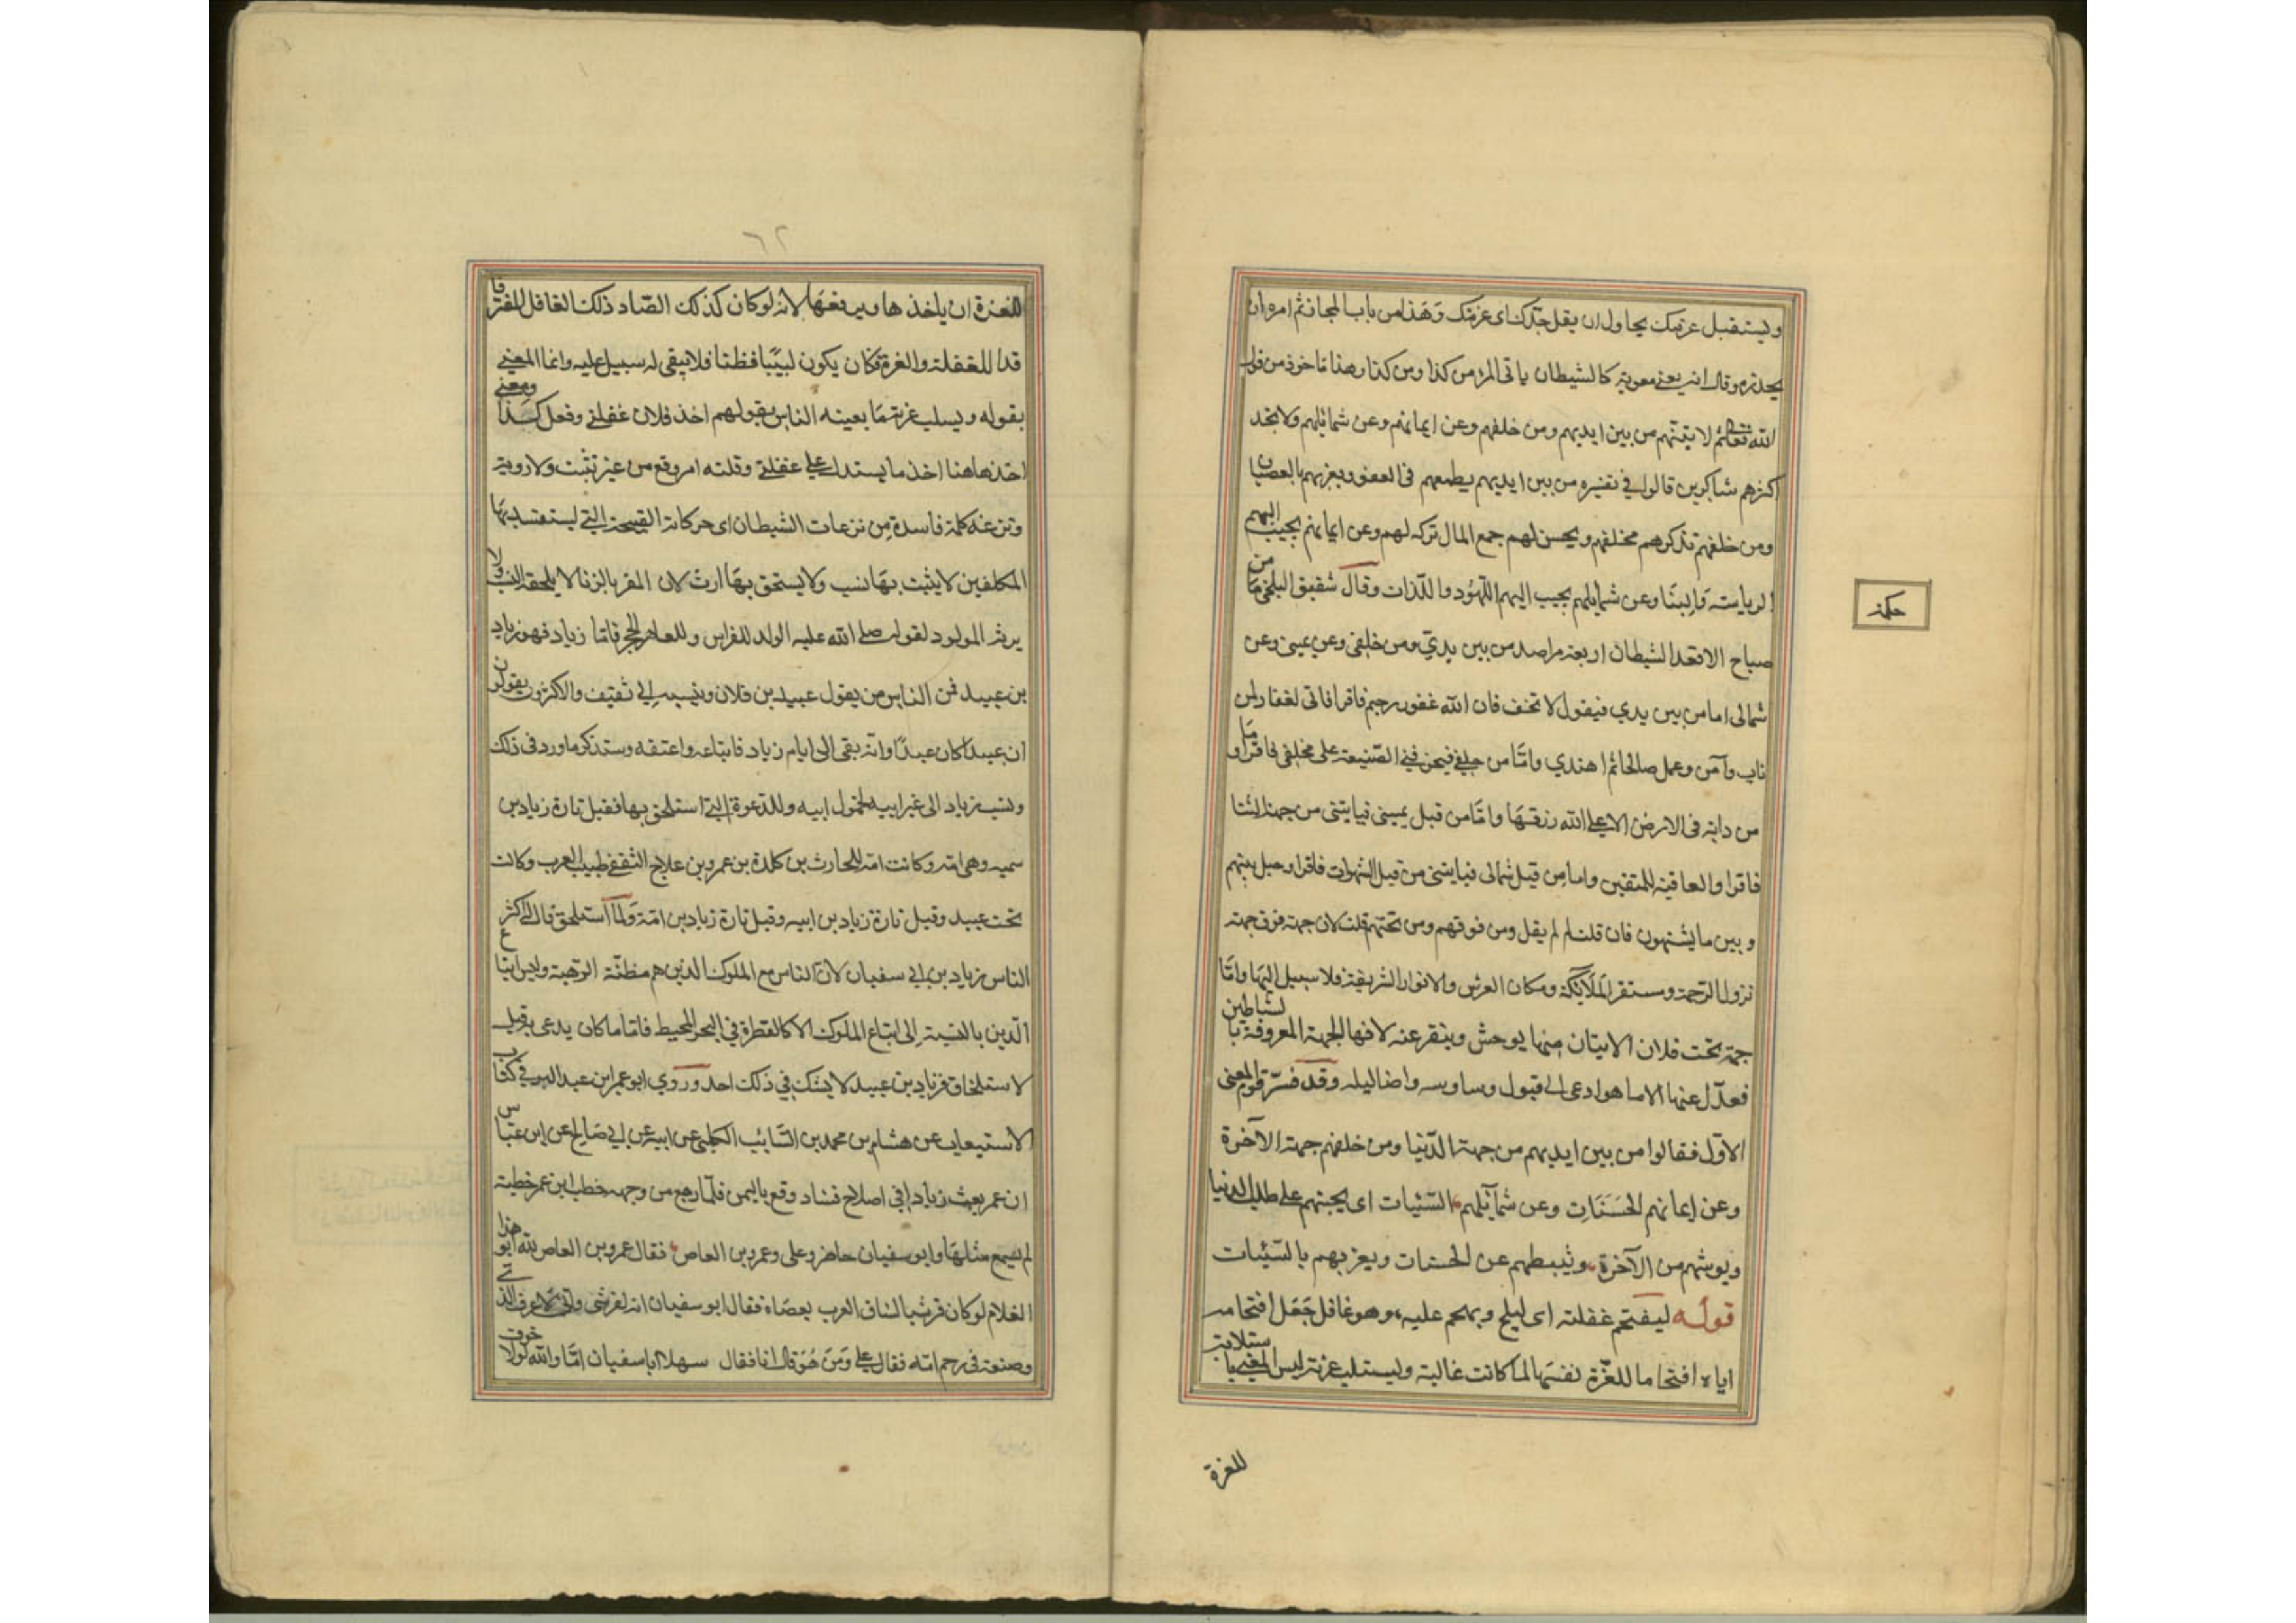 ويستفل عزمك يحاول ان يفل حدك اى عزمك وهذا من باب المجاز ثم امره ان
يحذره وقال انه يعنى معوية كالشيطان ياتى المرء من كذا ومن كذا وهذا ماخوذ من قول
الله تعالى ثم لاتينهم من بين ايديهم ومن خلفهم وعن ايمانهم وعن شمائلهم ولا تجد
اكثرهم شاكرين قالوا فى تفسيره من بين ايديهم يطمعهم فى العفو ويغريهم بالعصيان
ومن خلفهم يذكرهم مخلفهم ويحسن لهم جمع المال تركه لهم وعن ايمانهم يحبب اليهم
الرياسة والثنا وعن شمايلهم يحبب اليهم اللهو واللذات وقال شقيق البلخى ما من
صباح الا قعد الشيطان اربعة مراصد من بين يدي ومن خلفى وعن يمينى وعن
شمالى اما من بين يدي فيقول لا تخف فان الله غفور رحيم فاقرا فانى لغفار لمن
تاب وآمن وعمل صالحا ثم اهتدي واما من خلفى فيخوفنى الضيعة على مخلفى فاقرا وما
من دابة فى الارض الا على الله رزقها واما من قبل يمينى فياتينى من جهة الثنا
فاقرا والعاقبة للمتقين واما من قبل شمالى فياتينى من قبل الشهوات فاقرا وحيل بينهم
وبين ما يشتهون فان قلت لم لم يقل ومن فوقهم ومن تحتهم قلت لان جهة فوق جهة
نزول الرحمة ومستقر الملائكة ومكان العرش والانوار الشريفة فلا سبيل اليها واما
جهة تحت فلان الاتيان منها يوحش وينفر عنه لانها الجهة المعروفة بالشياطين
فعدل عنها الا ما هو ادعى الى قبول وساوسه واضاليله وقد فسر قوم المعنى
الاول فقالوا من بين ايديهم من جهة الدنيا ومن خلفهم جهة الآخرة
وعن ايمانهم الحسنات وعن شمآئلهم السيئات اى يحثهم على طلب الدنيا
ويويسهم من الآخرة ويثبطهم عن الحسنات ويغريهم بالسيئات
قوله ليفتحم غفلته اى ليلج ويهجم عليه وهو غافل جعل افتحامه
اياه افتحاما للغرة نفسها لما كانت غالبة وليستلب غرته ليس المعنى باستلابه
للغرة
حكمة
٦٢
للغرة ان ياخذها ويرفعها لانه لو كان كذلك لصار ذلك الغافل المغتر فا
قدا للغفلة والغرة فكان يكون لبيبا فظنا فلا يبقى له سبيل عليه وانما المعنى
بقوله ويسلب غرته ما يعينه الناس بقولهم اخذ فلان غفلتى وفعل كذا ومعنى
اخذ هاهنا اخذ ما يستدل على غفلتى وفلتة امر وقع من غير تثبت ولا روية
ونزغة كلمة فاسدة من نزغات الشيطان اى حركاته القبيحة التى ليستفسد بها
المكلفين لا يثبت بها نسب ولا يستحق بها ارث لان المقر بالزنا لا يلحقه النسب ولا
يرثه المولود لقوله صلى الله عليه الولد للفراش وللعاهر الحجر فاما زياد فهو زياد
بن عبيد فمن الناس من يقول عبيد بن فلان وينسبه الى ثقيف والاكثرون يقولون
ان عبيدا كان عبدا وانه بقى الى ايام زياد فابتاعه واعتقه وستذكر ما ورد فى ذلك
ونسب زياد الى غير ابيه لخمول ابيه وللدعوة التى استلحق بها فقيل تارة زياد بن
سميه وهى امه وكانت امة للحارث بن كلدة بن عمرو بن علاج الثقفى طبيب العرب وكانت
تحت عبيد وقيل تارة زياد بن ابيه وقيل تارة زياد بن امه ولما استلحق قال له اكثر
الناس زياد بن ابى سفيان لان الناس مع الملوك الذين هم مظنة الرهبة وليس اتباع
الدين بالنسبة الى اتباع الملوك الا كالقطرة فى البحر المحيط فاما ما كان يدعى به قبل
الاستلحاق فزياد بن عبيد لا يشك فى ذلك احد وروي ابو عمر ابن عبد البر فى كتاب
الاستيعاب عن هشام بن محمد بن السايب الكلبى عن ابيه عن ابى صالح عن ابن عباس
ان عمر بعث زيادا فى اصلاح فساد وقع باليمن فلما رجع من وجهه خطب ابن عمر خطبة
لم يسمع مثلها وابو سفيان حاضر وعلى وعمرو بن العاص فقال عمرو بن العاص لله ابو هذا
الغلام لو كان قرشيا لساق العرب بعصاه فقال ابو سفيان انه لقرشى وانى لاعرف الذى
وضعه فى رحم امه فقال على ومن هو قال انا فقال مهلا ابا سفيان اما والله لولا خوف